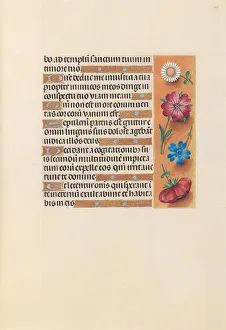 bo ad templum sanctum tuum in
timore tuo
Domine deduc me in iusticia tua
propter inimicos meos dirige in
conspectu tuo viam meam
Qm non est in ore eorum veritas
cor eorum vanum est
Sepulcrum patens est guttur e
orum linguis suis dolose agebāt
iudica illos deus
Decidant a cogitationibus su
is secundū multitudinē impietatū
eorū expelle eos qm irritaue
runt te domine
Et letentur oms qui sperant ī
te in eternū exultabūt et habita
bis in eis